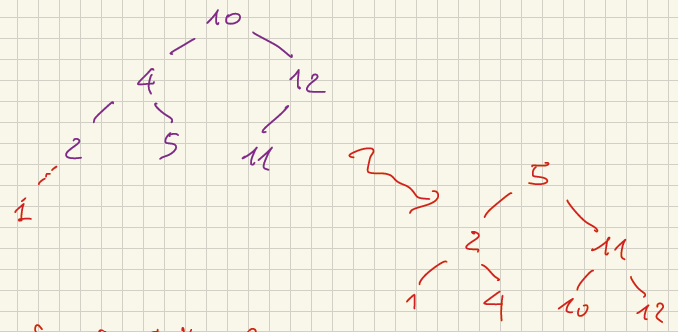 10
4 12
2 5 11
1
5
2 11
1 4 10 12